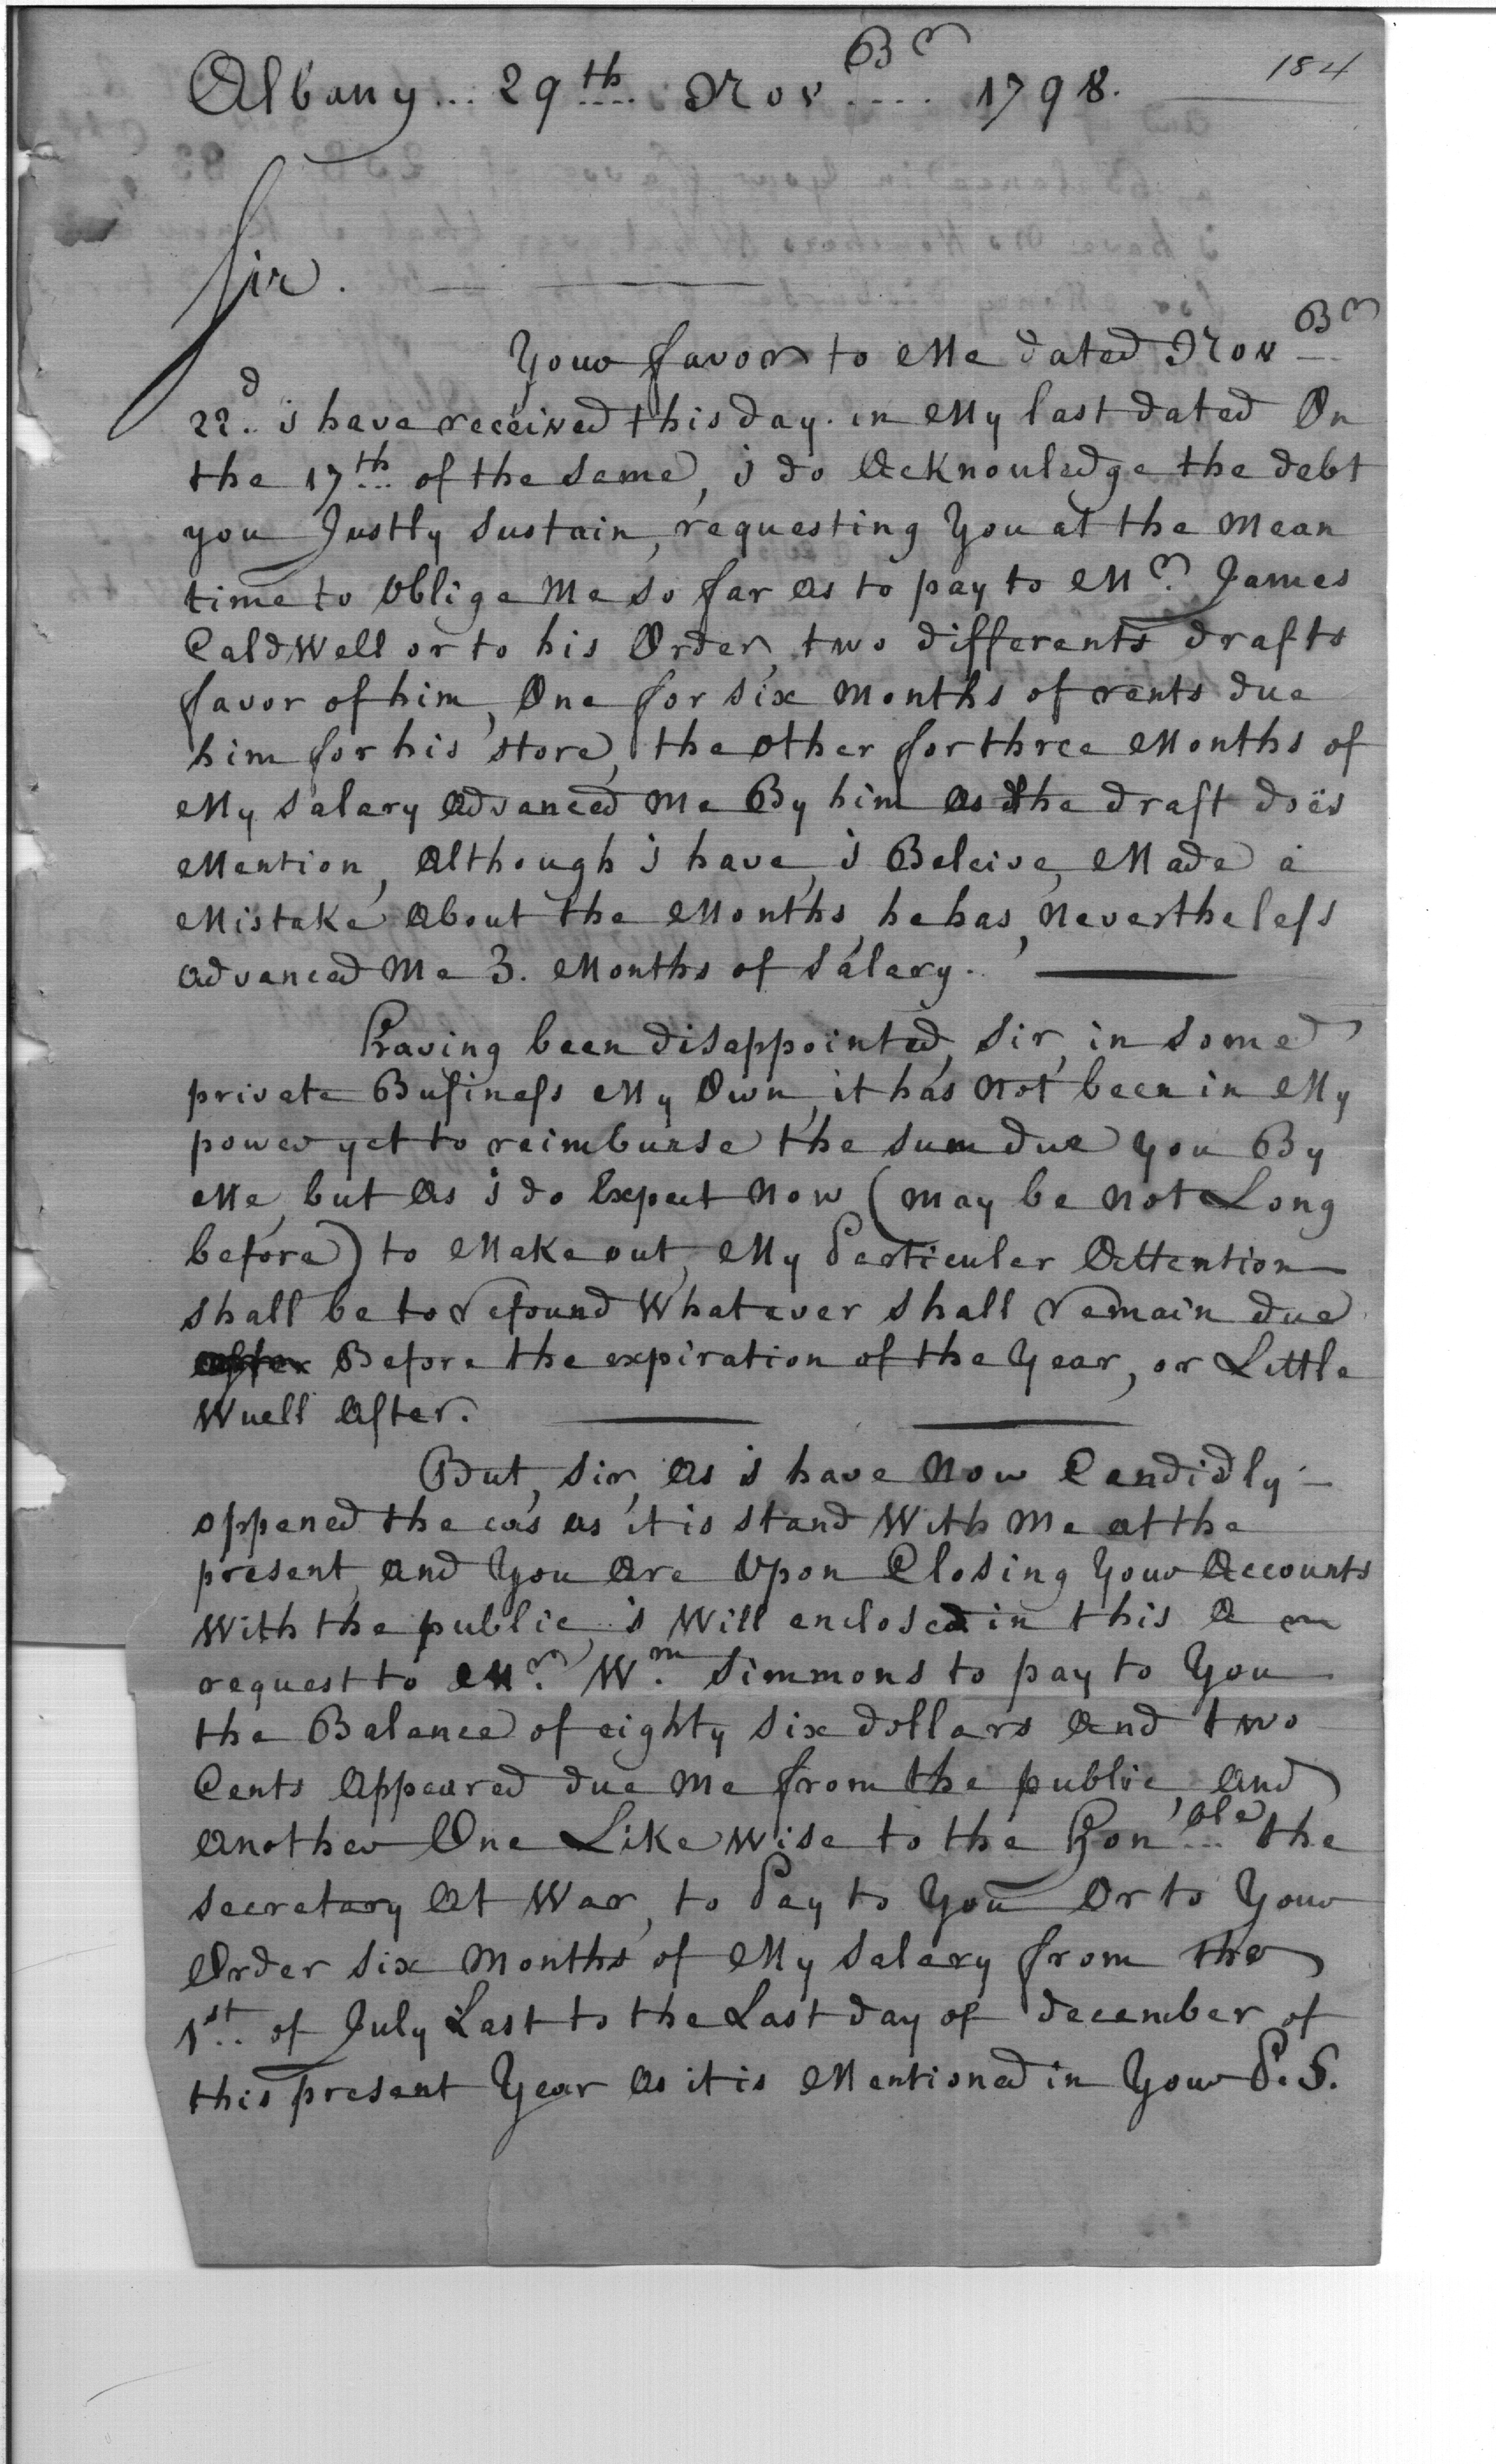 184
Albany... 29th Novbr 1798.
Sir.
Your favor to Me dated Novbr
22d. i have received this day. in My last dated On
the 17th of the same, i do Acknouledge the debt
you Justly sustain, requesting You at the Mean
time to Oblige Me so far As to pay to Mr. James
CaldWell or to his Order, two differents drafts
favor of him, One for six Months of rents due
him for his store, the Other for three Months of
My salary Advanced Me By him As the draft doës
Mention, Although i have, i Beleive, Made a
Mistake About the Months, he has, Nevertheless
Advanced Me 3. Months of salary.
Having been disappointed, Sir, in some
private Business My Own, it has Not been in My
power yet to reimburse the sum due you By
Me, but As i do Expect Now (May be Not Long
before) to Make out, My Particular Attention
shall be to refound Whatever shall remain due
after Before the expiration of the Year, or Little
Wuell After.
But, Sir, As i have Now Candidly
oppened the cas as it is stand With Me at the
present, and You Are Upon Closing Your Accounts
With the public, i Will enclosed in this A
request to Mr. Wm. Simmons to pay to You
the Balance of eighty six dollars And two
Cents Appeared due Me from the public, And
Another One LikeWise to the Honble the
Secretary At War, to Pay to You Or to Your
Order six Months of My salary from the
1st. of July Last to the Last day of december of
this present Year As it is Mentioned in Your P.S.